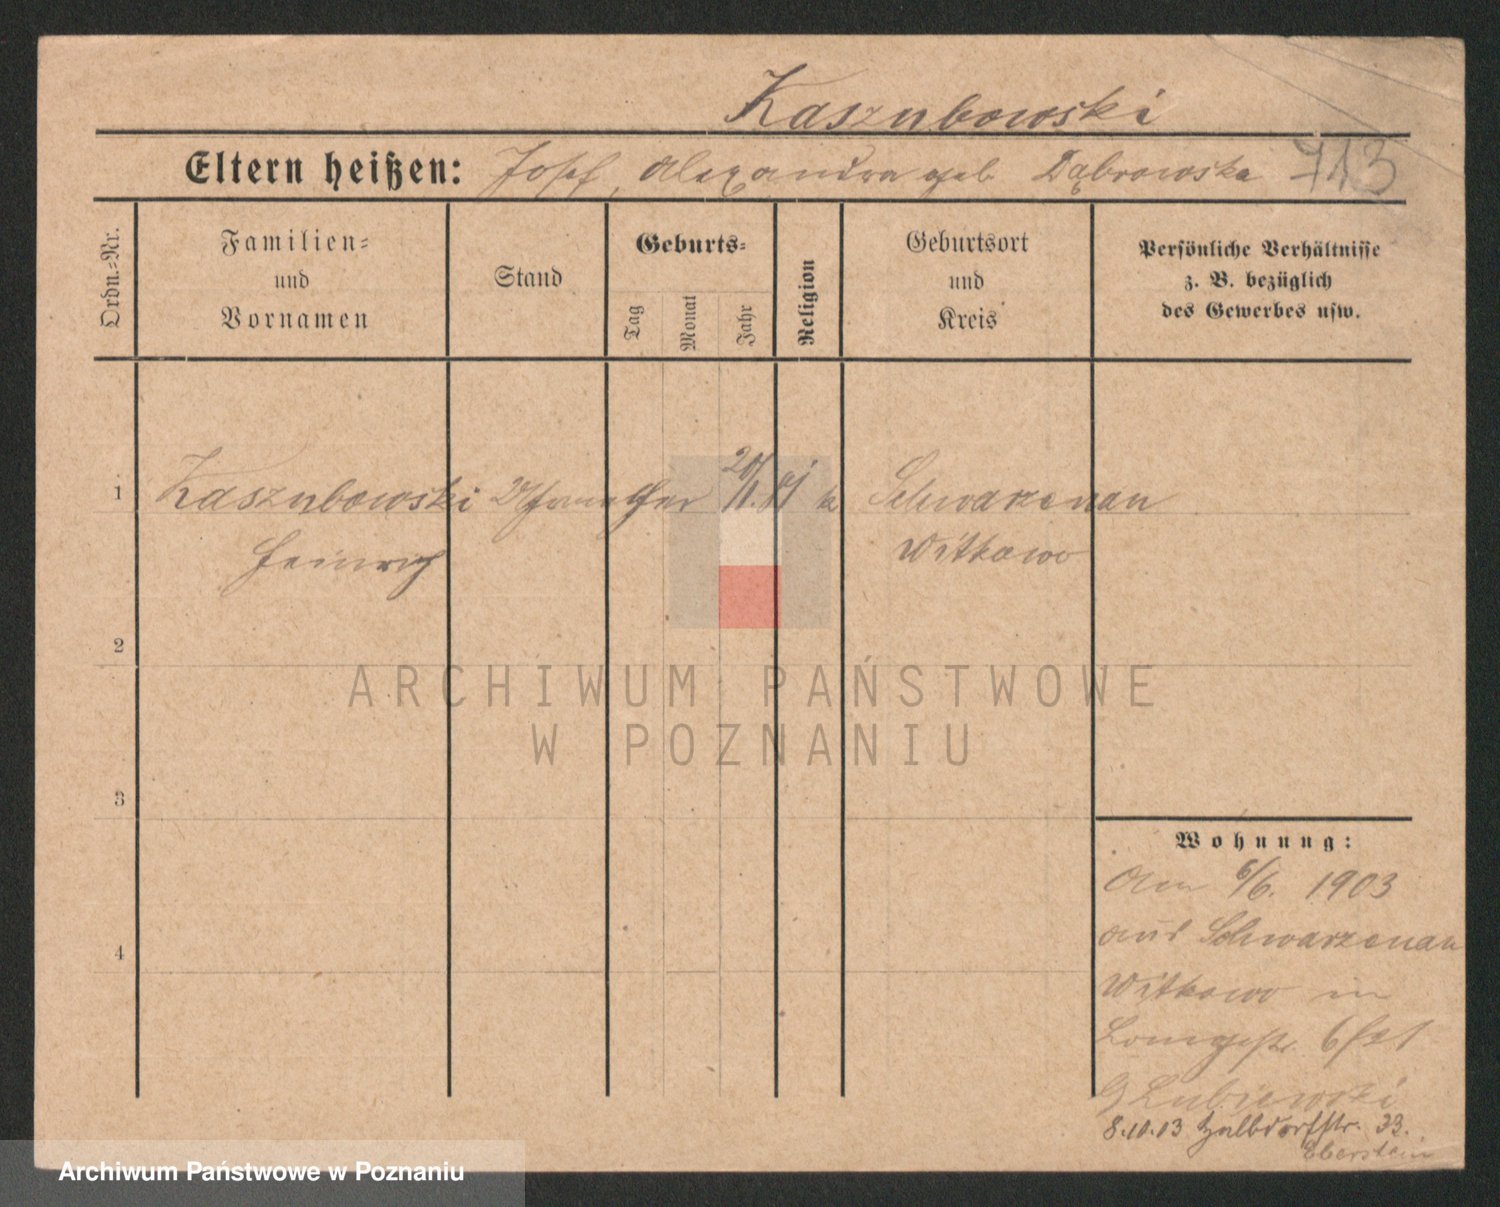 Kaszubowski
Eltern heißen: Josef, Alexandra geb. Dąbrowska 713
Ordn.-Nr.
Familien-
und
Vornamen
Stand
Geburts-
Tag
Monat
Jahr
Religion
Geburtsort
und
Kreis
Persönliche Verhältnisse
z. B. bezüglich
des Gewerbes usw.
1 Kaszubowski 20/1. 81 k Schwarzenau
Heinrich Witkowo
2
3
4
Wohnung:
Am 6/6. 1903
aus Schwarzenau
Witkowo in
Langestr. 6
G Lubiewski
8.10.13 Halbdorfstr. 33.
Eberstein
ARCHIWUM PAŃSTWOWE
W POZNANIU
Archiwum Państwowe w Poznaniu